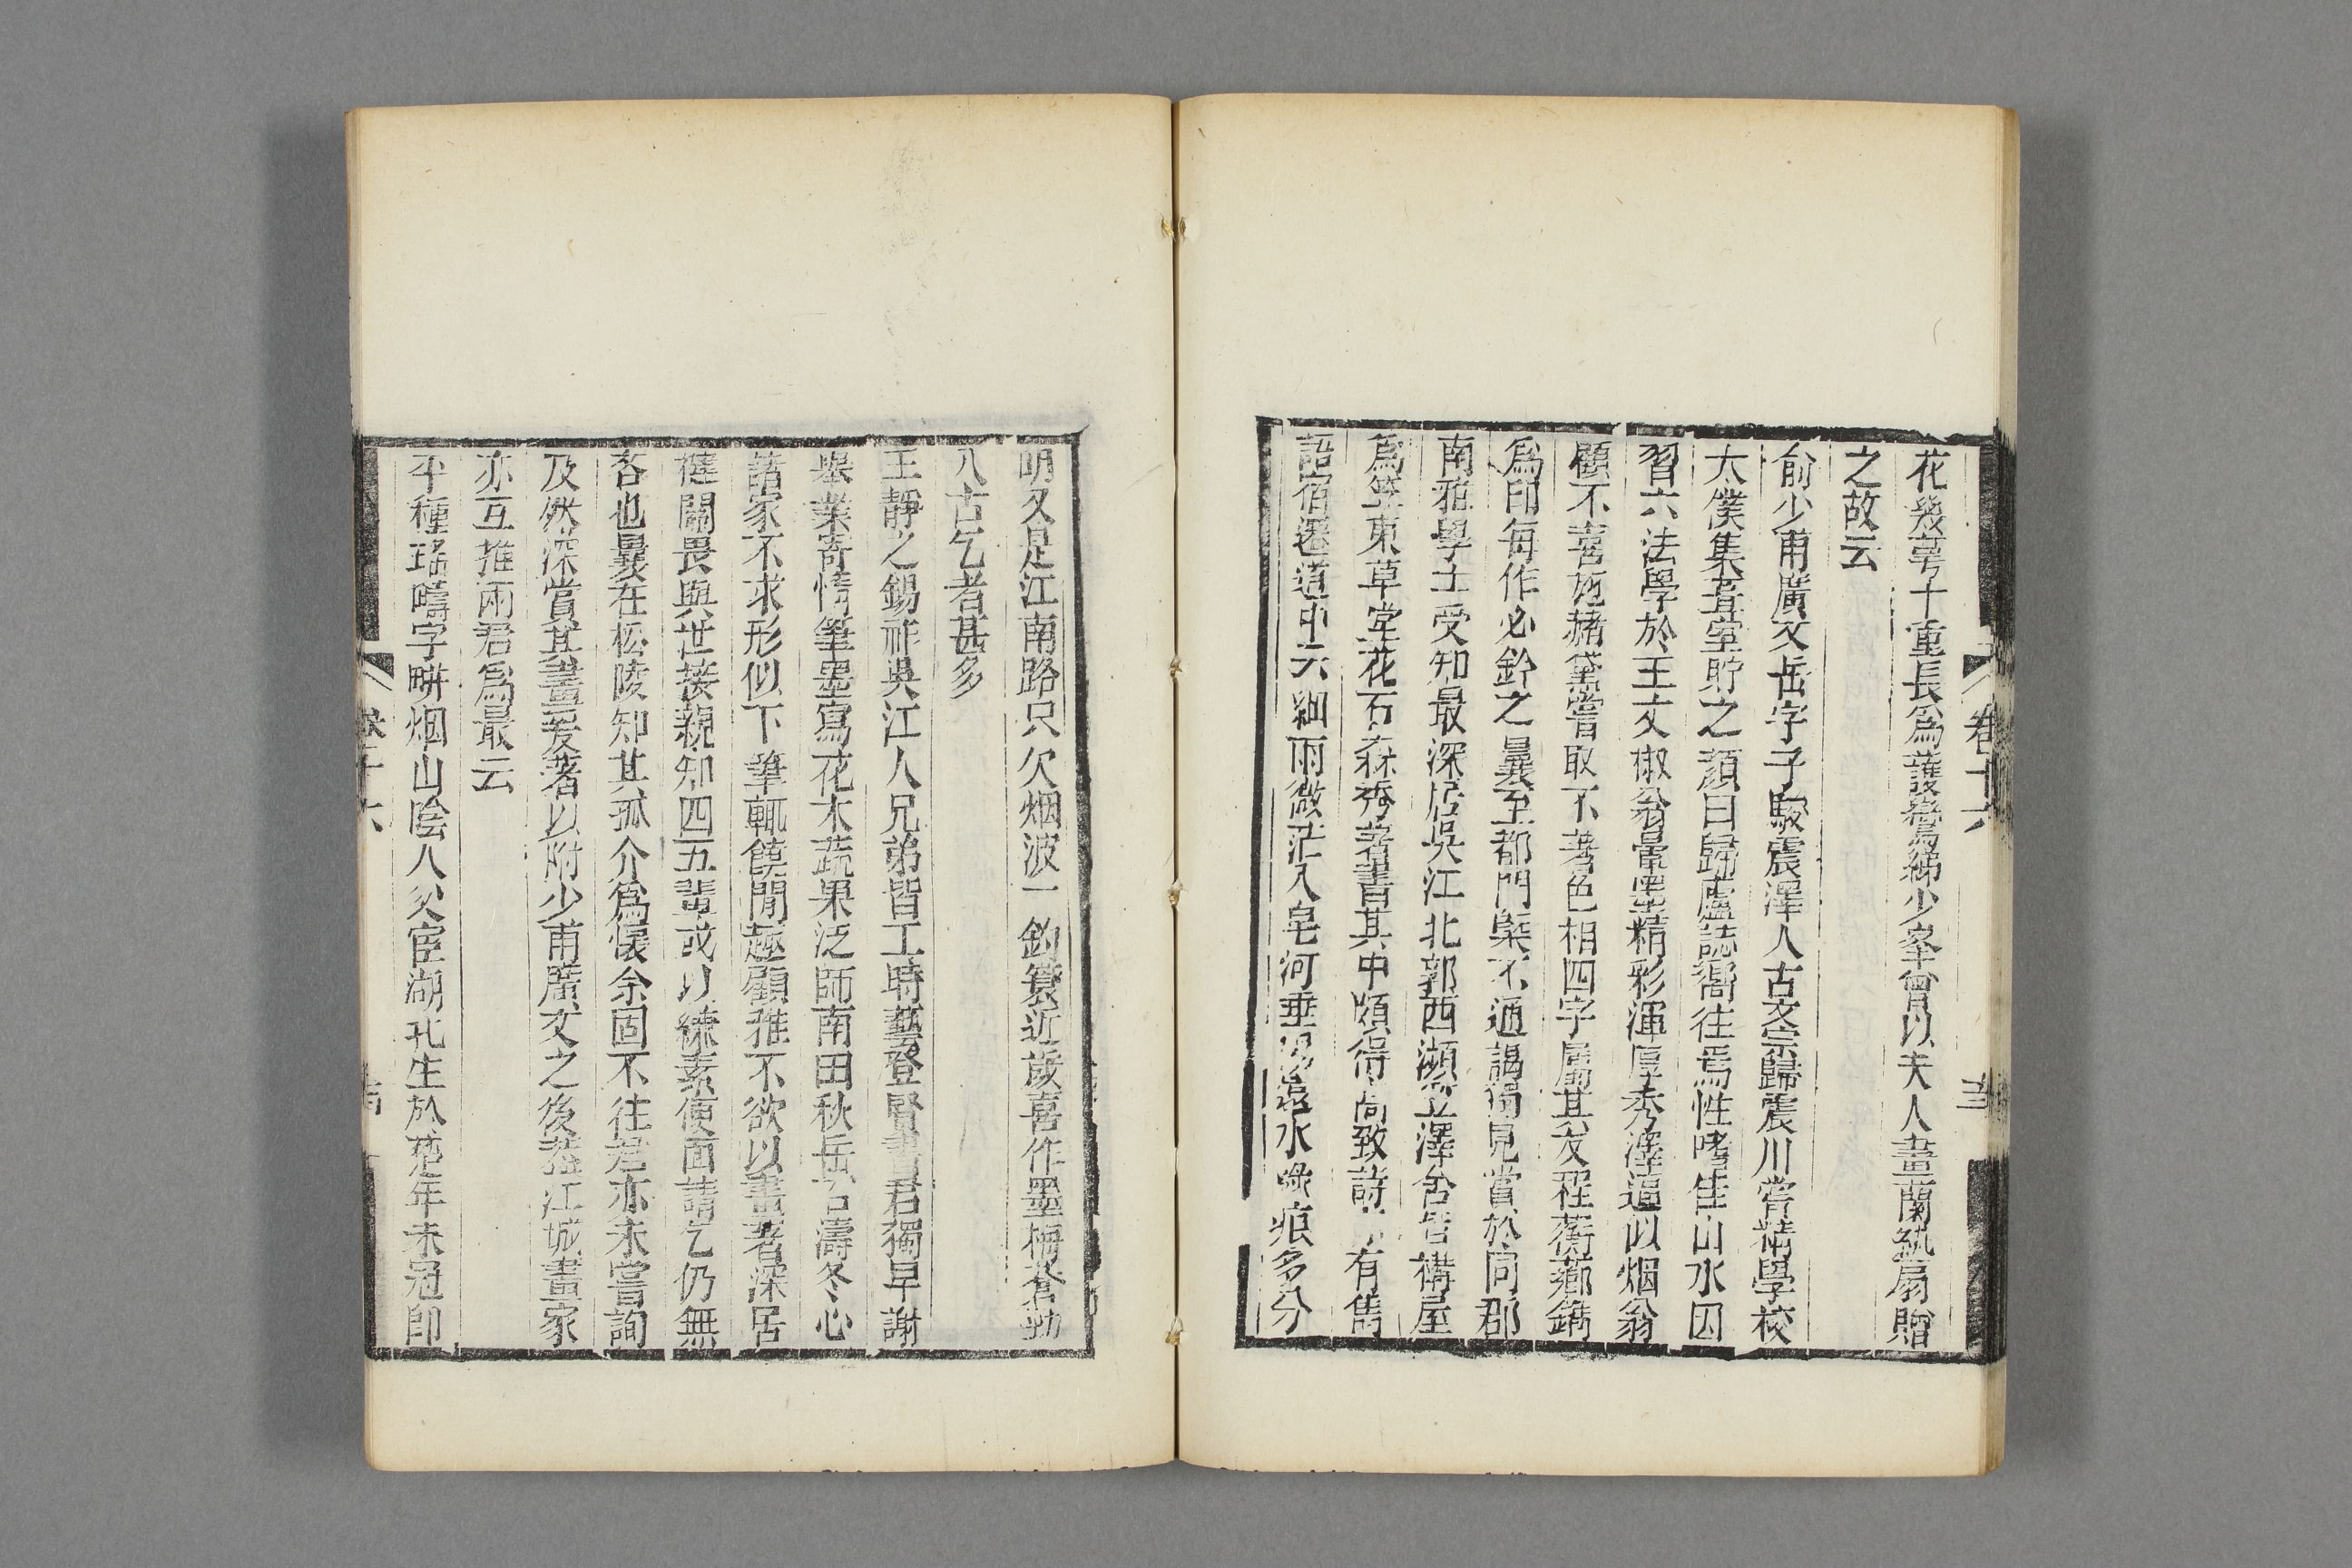 花幾萼十重長爲護鴛鴦綈少峯曾以夫人畫蘭紈扇贈
之故云
俞少甫廣文岳字子駿震澤人古文宗歸震川嘗精學校
太僕集葺室貯之顏曰歸廬誌嚮往焉性嗜佳山水因
習六法學於王文椒翁暈墨精彩渾厚秀澤逼似烟翁
顧不喜施赭黛嘗取不著色相四字屬其友程蘅薌鐫
爲印每作必鈐之曩至都門槩不通謁獨見賞於同郡
南雅學士受知最深居吳江北郭西瀕笠澤舍旁構屋
爲笠東草堂花石森秀著書其中頗得高致詩 有雋
語宿遷道中云細雨微茫入皂河垂楊 水 痕多分
卷十六
明久是江南路只欠烟波一釣簑近歲喜作墨梅蒼勁
入古乞者甚多
王靜之錫祚吳江人兄弟皆工時藝登賢書君獨早謝
舉業寄情筆墨寫花木蔬果泛師南田秋岳石濤冬心
諸家不求形似下筆輒饒閒趣顧雅不欲以畫著深居
揵關畏與世接親知四五輩或以練素便面請乞仍無
吝也曩在松陵知其孤介爲懷余固不往君亦未嘗詢
及然深賞其畫爰著以附少甫廣文之後蓋江城畫家
亦互推兩君爲最云
平種瑤疇字畊烟山陰人父宦湖北生於楚年未冠即
卷十六